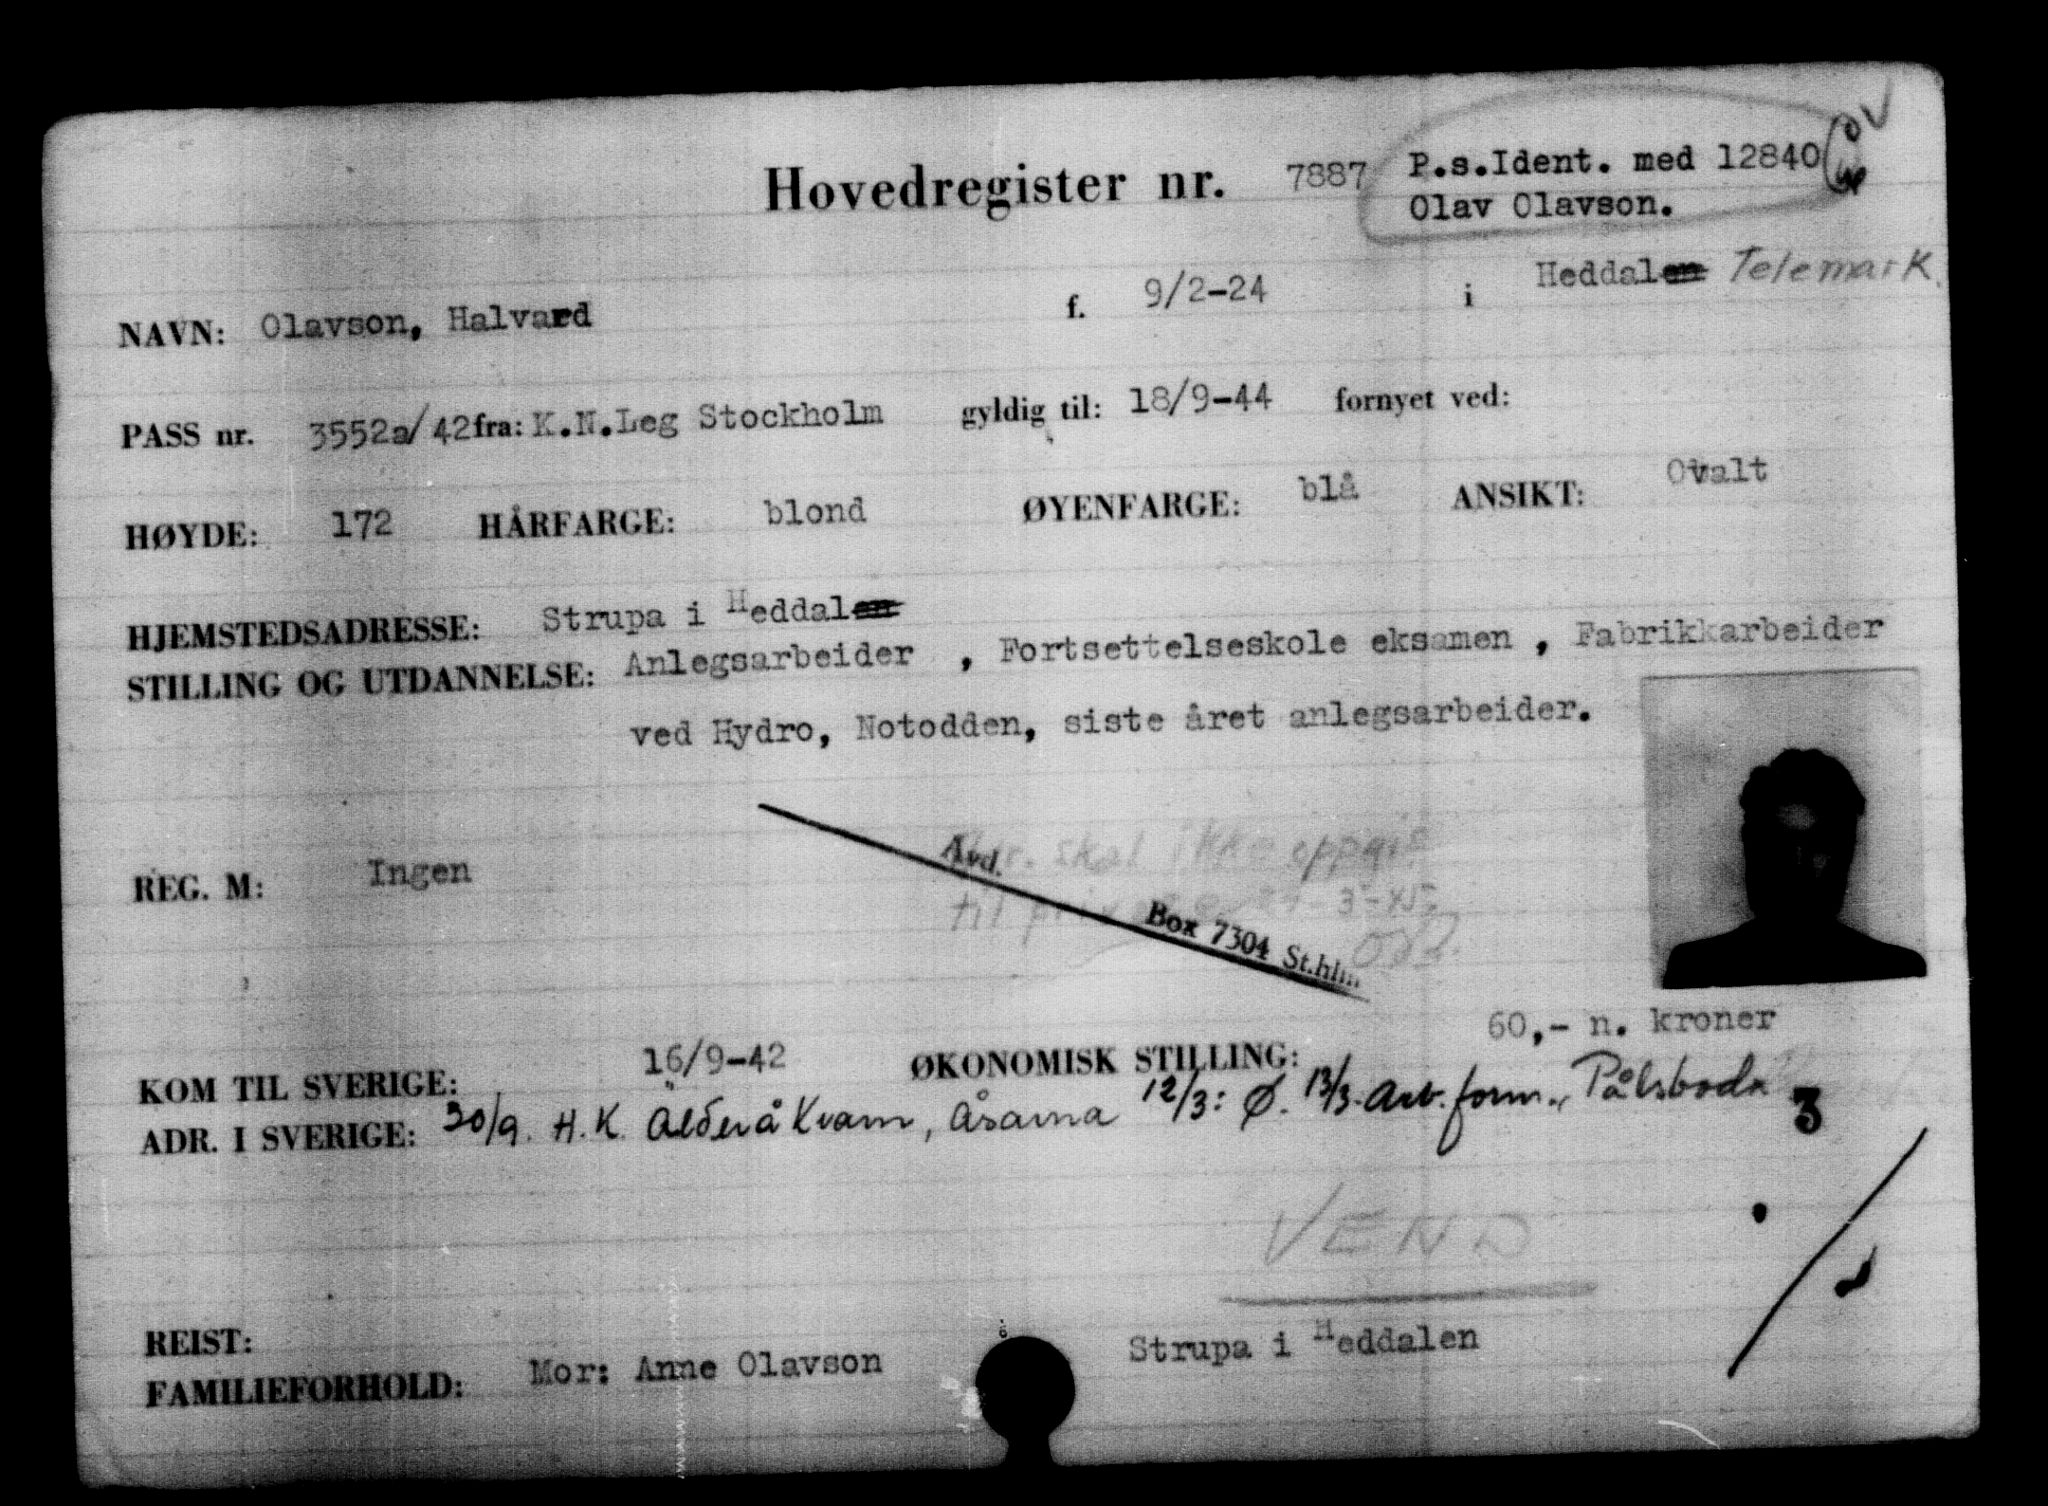 Hovedregister nr. 7887 P.s.Ident. med 12840
Olav Olavson.
NAVN: Olavson, Halvard f. 9/2-24 i Heddalen Telemark.
PASS nr. 3552a/42 fra: K.N.Leg Stockholm gyldig til: 18/9-44 fornyet ved:
HØYDE: 172 HÅRFARGE: blond ØYENFARGE: blå ANSIKT: Ovalt
HJEMSTEDSADRESSE: Strupa i Heddalen
STILLING OG UTDANNELSE: Anlegsarbeider , Fortsettelseskole eksamen , Fabrikkarbeider
ved Hydro, Notodden, siste året anlegsarbeider.
skal ikke oppgis
til
REG. M: Ingen
Avd. Box 7304 St.hlm
60,- n. kroner
KOM TIL SVERIGE: 16/9-42 ØKONOMISK STILLING:
ADR. I SVERIGE: 30/9. H.K. Kvarn, Åsarna 12/3: Ø. 13/3. Arb. form., Pålsboda 3
VEND
REIST:
FAMILIEFORHOLD: Mor: Anne Olavson Strupa i Heddalen